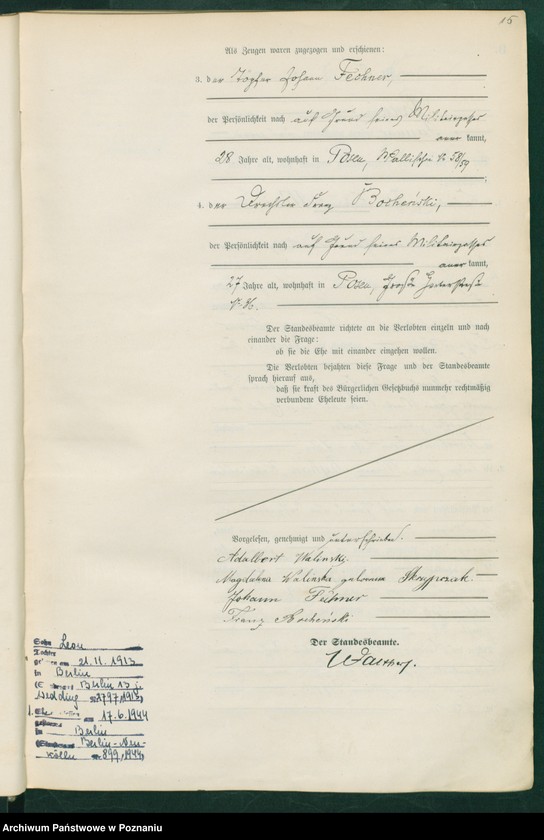 16
Als Zeugen waren zugezogen und erschienen:
3. der Töpfer Johann Fechner,
der Persönlichkeit nach auf Grund seines Militairpasses
kannt,
28 Jahre alt, wohnhaft in Posen, Wallischei N 58/59
4. der Drechsler Franz Bocheński,
der Persönlichkeit nach auf Grund seines Militairpasses
kannt,
27 Jahre alt, wohnhaft in Posen, Große
Der Standesbeamte richtete an die Verlobten einzeln und nach
einander die Frage:
ob sie die Ehe mit einander eingehen wollen.
Die Verlobten bejahten diese Frage und der Standesbeamte
sprach hierauf aus,
daß sie kraft des Bürgerlichen Gesetzbuchs nunmehr rechtmäßig
verbundene Eheleute seien.
Vorgelesen, genehmigt und unterschrieben.
Adalbert Walinski.
Magdalena Walinska geborene Skrzypczak.
Johann Fechner
Franz Bocheński
Der Standesbeamte.
Sohn Leon
Tochter
geboren am 21.11.1913
in Berlin
Berlin 13
Wedding 1797/1913)
1. Ehe am 17.6.1944
in Berlin
Berlin-Neu-
kölln 899/1944)
Archiwum Państwowe w Poznaniu